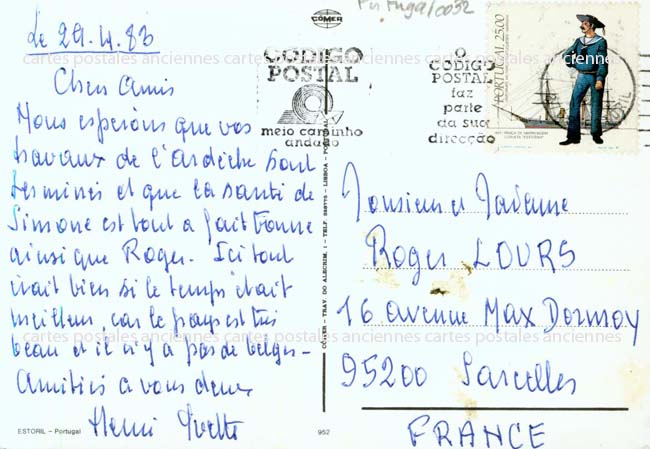 Le 29.4.83
Chers Amis
Nous espérons que vos
travaux de l'ardèche sont
terminés et que la santé de
Simone est tout a fait bonne
ainsi que Roger. Ici tout
irait bien si le temps était
meilleur, car le pays est très
beau et il n'y a pas de belges-
Amitiés a vous deux
Henri Yvette
ESTORIL - Portugal
952
CÓMER - TRAV. DO ALECRIM, 1 - TELF. - LISBOA - PORTUGAL
CÓMER
Portugal/0032
CÓDIGO
POSTAL
meio caminho
andado
O
CÓDIGO
POSTAL
faz
parte
da sua
direcção
PORTUGAL 25.00
Monsieur et Madame
Roger LOURS
16 avenue Max Dormoy
95200 Sarcelles
FRANCE
cartes postales anciennes cartes postales anciennes cartes postales anciennes
cartes postales anciennes cartes postales anciennes cartes postales anciennes
cartes postales anciennes cartes postales anciennes cartes postales anciennes